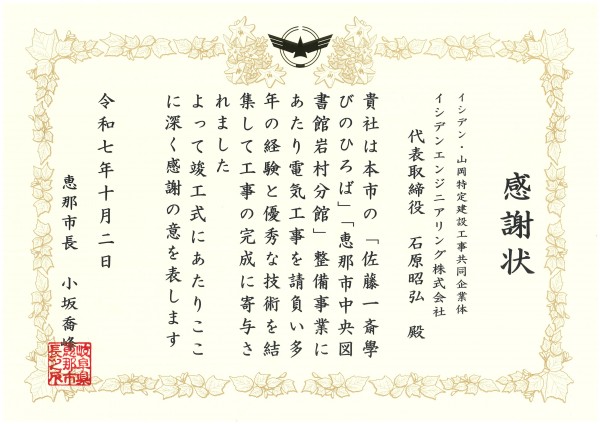 感謝状
イシデン・山岡特定建設工事共同企業体
イシデンエンジニアリング株式会社
代表取締役 石原昭弘 殿
貴社は本市の「佐藤一斎學
びのひろば」「恵那市中央図
書館岩村分館」整備事業に
あたり電気工事を請負い多
年の経験と優秀な技術を結
集して工事の完成に寄与さ
れました
よって竣工式にあたりここ
に深く感謝の意を表します
令和七年十月二日
恵那市長 小坂喬峰
岐阜県
恵那市
長之印